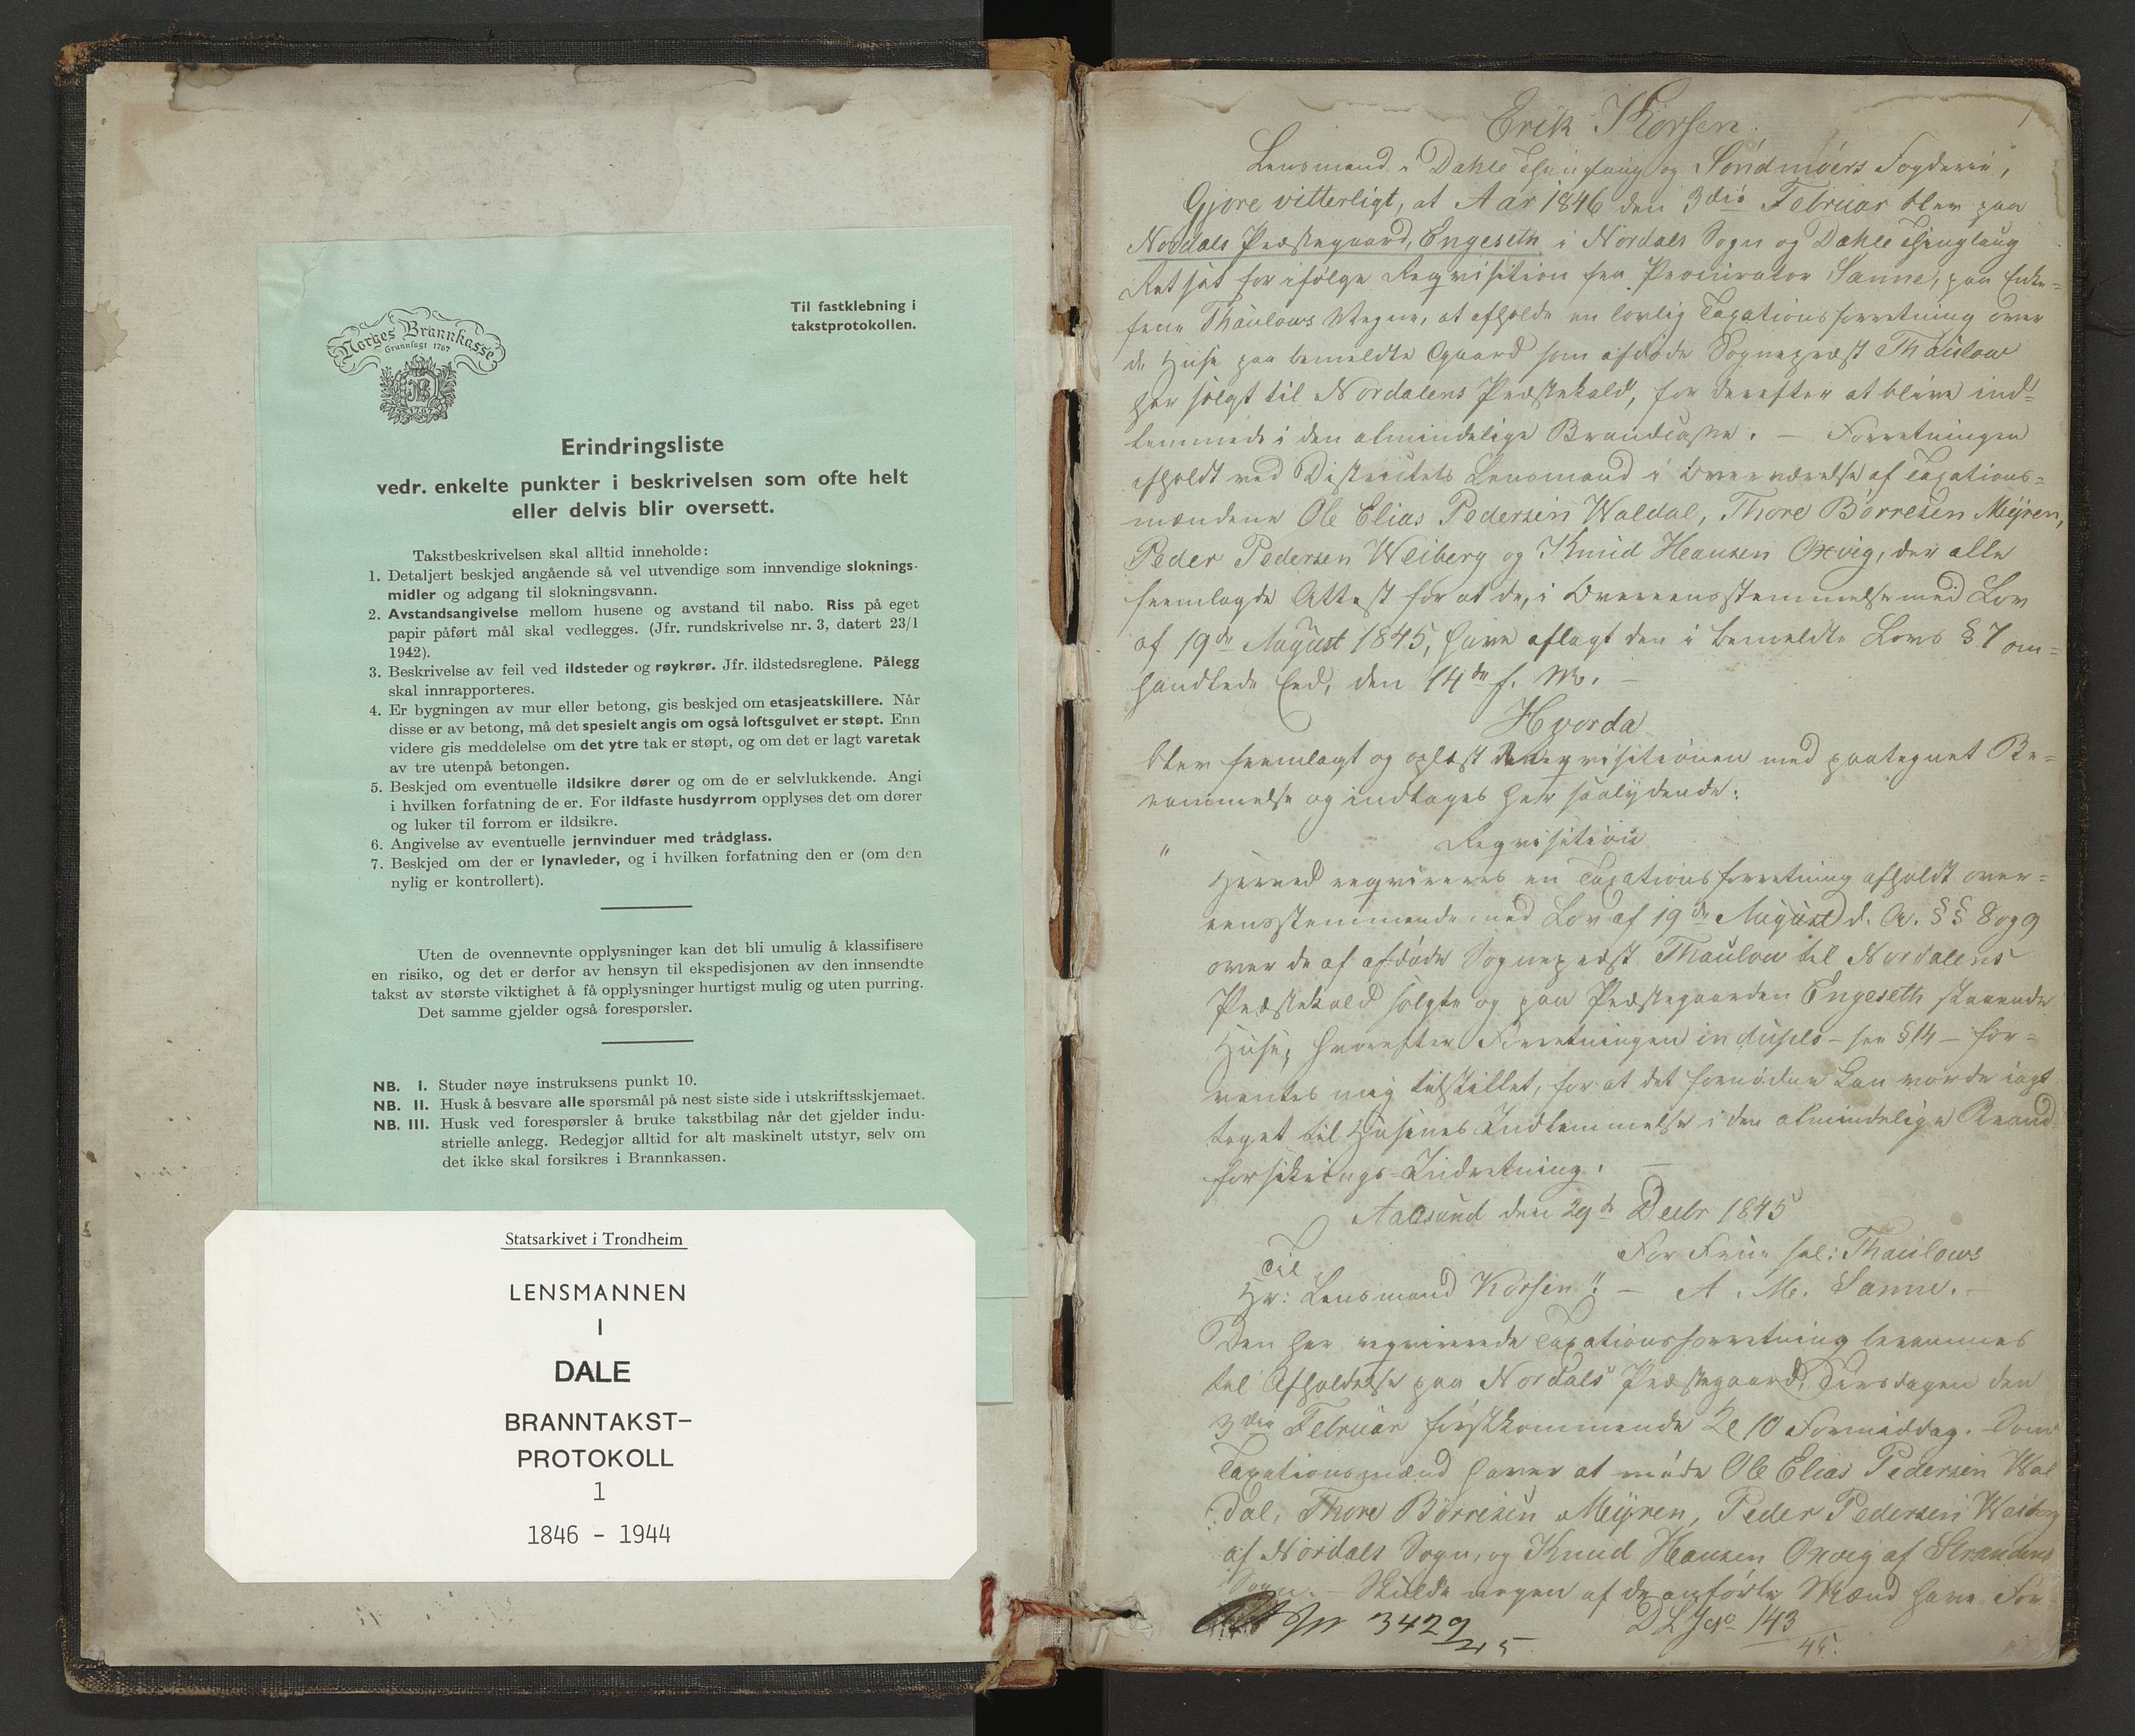 Til fastklebning i
takstprotokollen.
Norges Brannkasse
Grunnlagt 1767
1767
Erindringsliste
vedr. enkelte punkter i beskrivelsen som ofte helt
eller delvis blir oversett.
Takstbeskrivelsen skal alltid inneholde:
1. Detaljert beskjed angående så vel utvendige som innvendige sloknings-
midler og adgang til slokningsvann.
2. Avstandsangivelse mellom husene og avstand til nabo. Riss på eget
papir påført mål skal vedlegges. (Jfr. rundskrivelse nr. 3, datert 23/1
1942).
3. Beskrivelse av feil ved ildsteder og røykrør. Jfr. ildstedsreglene. Pålegg
skal innrapporteres.
4. Er bygningen av mur eller betong, gis beskjed om etasjeatskillere. Når
disse er av betong, må det spesielt angis om også loftsgulvet er støpt. Enn
videre gis meddelelse om det ytre tak er støpt, og om det er lagt varetak
av tre utenpå betongen.
5. Beskjed om eventuelle ildsikre dører og om de er selvlukkende. Angi
i hvilken forfatning de er. For ildfaste husdyrrom opplyses det om dører
og luker til forrom er ildsikre.
6. Angivelse av eventuelle jernvinduer med trådglass.
7. Beskjed om der er lynavleder, og i hvilken forfatning den er (om den
nylig er kontrollert).
Uten de ovennevnte opplysninger kan det bli umulig å klassifisere
en risiko, og det er derfor av hensyn til ekspedisjonen av den innsendte
takst av største viktighet å få opplysninger hurtigst mulig og uten purring.
Det samme gjelder også forespørsler.
NB. I. Studer nøye instruksens punkt 10.
NB. II. Husk å besvare alle spørsmål på nest siste side i utskriftsskjemaet.
NB. III. Husk ved forespørsler å bruke takstbilag når det gjelder indu-
strielle anlegg. Redegjør alltid for alt maskinelt utstyr, selv om
det ikke skal forsikres i Brannkassen.
Statsarkivet i Trondheim
LENSMANNEN
I
DALE
BRANNTAKST-
PROTOKOLL
1
1846 - 1944
1
Erik Korsen
Lensmand i Dahle Thinglaug og Söndmöers Fogderie,
Gjöre vitterligt, at Aar 1846 den 3die Februar blev paa
Nordals Præstegaard, Engeseth i Nordals Sogn og Dahle Thinglaug
Ret sat for ifölge Reqvisition fra Procurator Sanne, paa Enke=
frue Thaulows Vegne, at afholde en lovlig Taxationsforretning over
de Huse paa bemeldte Gaard som afdöde Sognepræst Thaulow
har solgt til Nordalens Præstekald, for derefter at blive ind=
lemmede i den almindelige Brandcasse. — Forretningen
afholdt ved Districtets Lensmand i Overværelse af Taxations=
mændene Ole Elias Pedersen Waldal, Thore Börresen Meÿren,
Peder Pedersen Weiberg og Knud Hansen Oxvig, der alle
fremlagde Attest for at de, i Overeensstemmelse med Lov
af 19de August 1845, have aflagt den i bemeldte Lovs § 7 om=
handlede Eed, den 14de f. M. —
Hvorda
blev fremlagt og oplæst Reqvisitionen med paategnet Be=
rammelse og indtages her saalydende:
" Reqvisition
Herved reqvireres en Taxationsforretning afholdt over=
eensstemmende med Lov af 19de August d. A. §§ 8 og 9
over de af afdöde Sognepræst Thaulow til Nordalens
Præstekald solgte og paa Præstegaarden Engeseth staaende
Huse, hvorefter Forretningen in duplo – see § 14 – for=
ventes mig tilstillet, for at det fornödne kan vorde iagt
taget til Husenes Indlemmelse i den almindelige Brand
forsikrings-Indretning. —
Aalesund den 29de Decbr 1845
For Frue sal: Thaulows
Til
Hr: Lensmand Korsen". — A. M. Sanne. —
Den her reqvirerede Taxationsforretning berammes
til Afholdelse paa Nordals Præstegaard, Tirsdagen den
3die Februar förstkommende Kl 10 Formiddag. Som
Taxationsmænd haver at möde Ole Elias Pedersen Wal
dal, Thore Börresen Meÿren, Peder Pedersen Weiberg
af Nordals Sogn, og Knud Hansen Oxvig af Strandens
Sogn. — Skulde nogen af de anförte Mænd have For
3429
45
143
45.